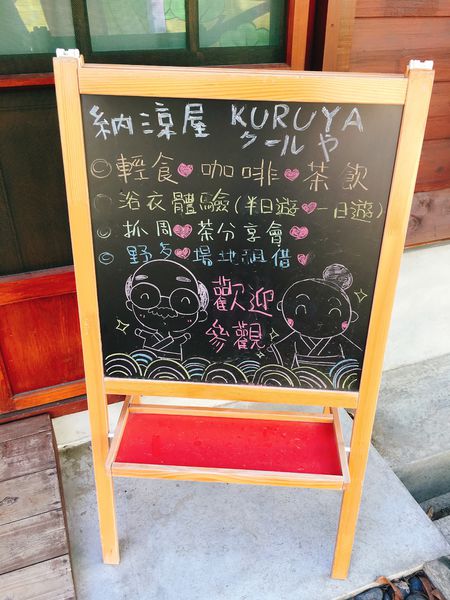 納涼屋 KURUYA
クールや
◎輕食♥咖啡♥茶飲
浴衣體驗(半日遊♥一日遊)
抓周♥茶分享會♥
野餐♥場地租借♥
歡迎
參觀